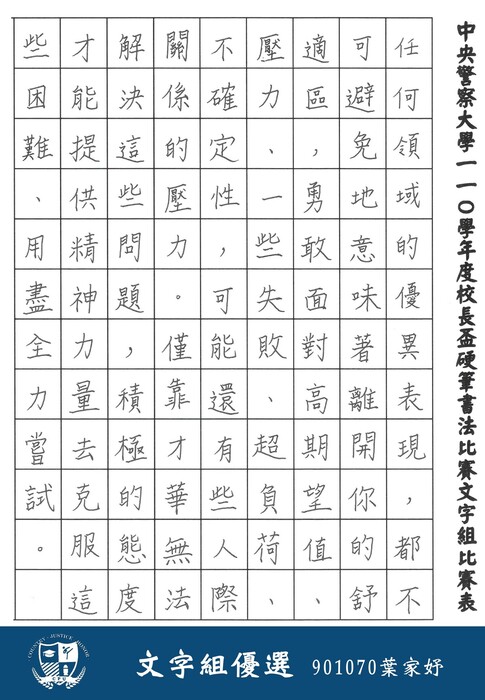 中央警察大學一一〇學年度校長盃硬筆書法比賽文字組比賽表
任何領域的優異表現，都不
可避免地意味著離開你的舒
適區，勇敢面對高期望值、
壓力、一些失敗、超負荷、
不確定性，可能還有些人際
關係的壓力。僅靠才華無法
解決這些問題，積極的態度
才能提供精神力量去克服這
些困難、用盡全力嘗試。
文字組優選 901070葉家妤